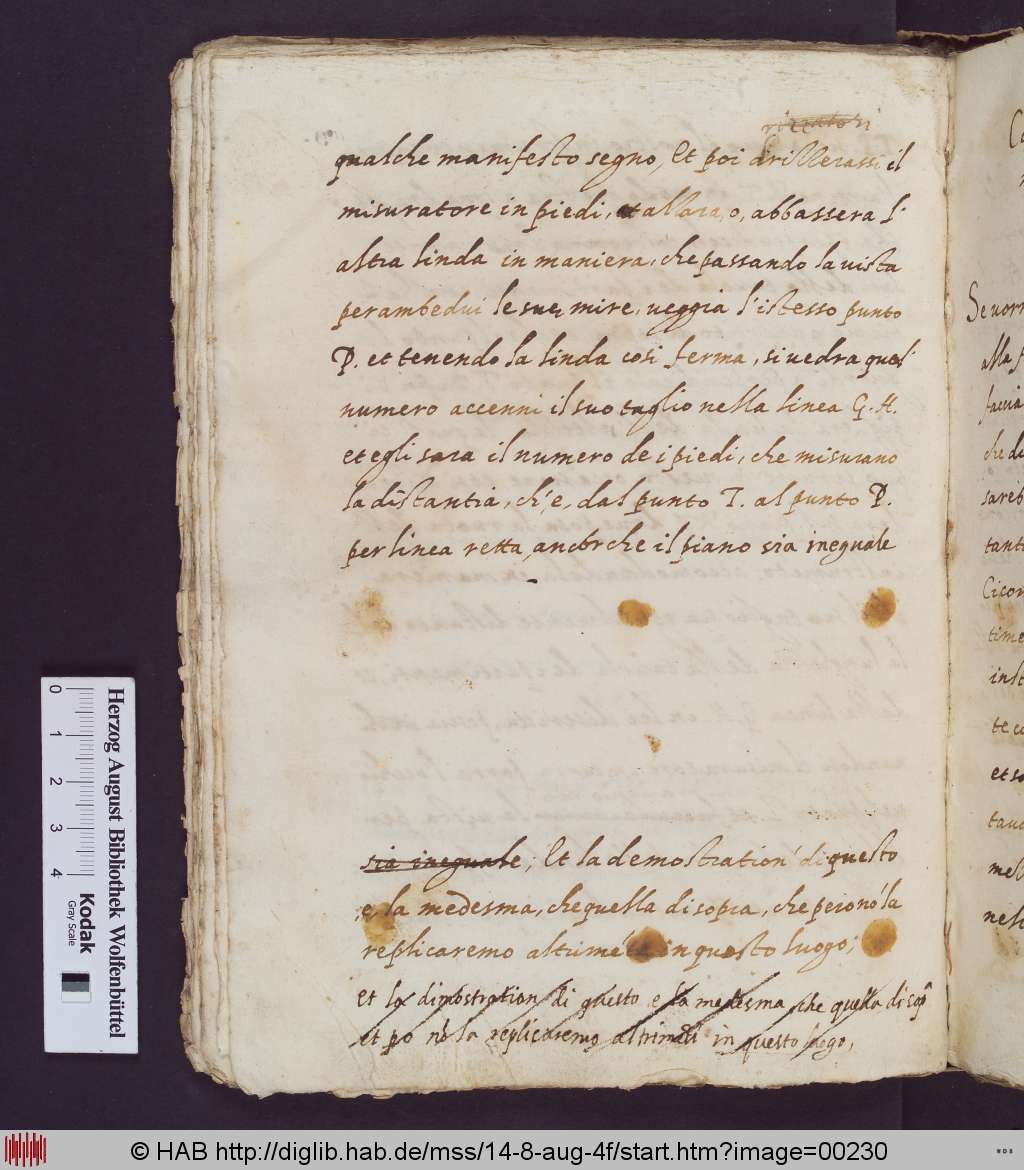 qualche manifesto segno, Et poi drillerassi il
misuratore in piedi, et allora, o, abbassera l'
altra linda in maniera, che passando la uista
perambedui le sue mire, ueggia l'istesso punto
P. et tenendo la linda cosi ferma, si uedra quel'
numero accenni il suo taglio nella linea G. H.
et egli sara il numero de i piedi, che misurano
la distantia, ch'e, dal punto I. al punto P.
per linea retta, ancor che il piano sia ineguale
sia ineguale; Et la demostration' di questo
e, la medesma, che quella di sopra, che peronó la
replicaremo altrimé in questo luogo;
et la dimostration di questo e la medesma che quella di sop
et po nò la replicaremo altrimēti in questo luogo,
Se uorr
alla
faccia
che di
sareb
tant
Cicor
time
inst
te c
et s
taua
mel
nel
0 1 2 3 4
Herzog August Bibliothek Wolfenbüttel
Kodak
Gray Scale
© HAB http://diglib.hab.de/mss/14-8-aug-4f/start.htm?image=00230